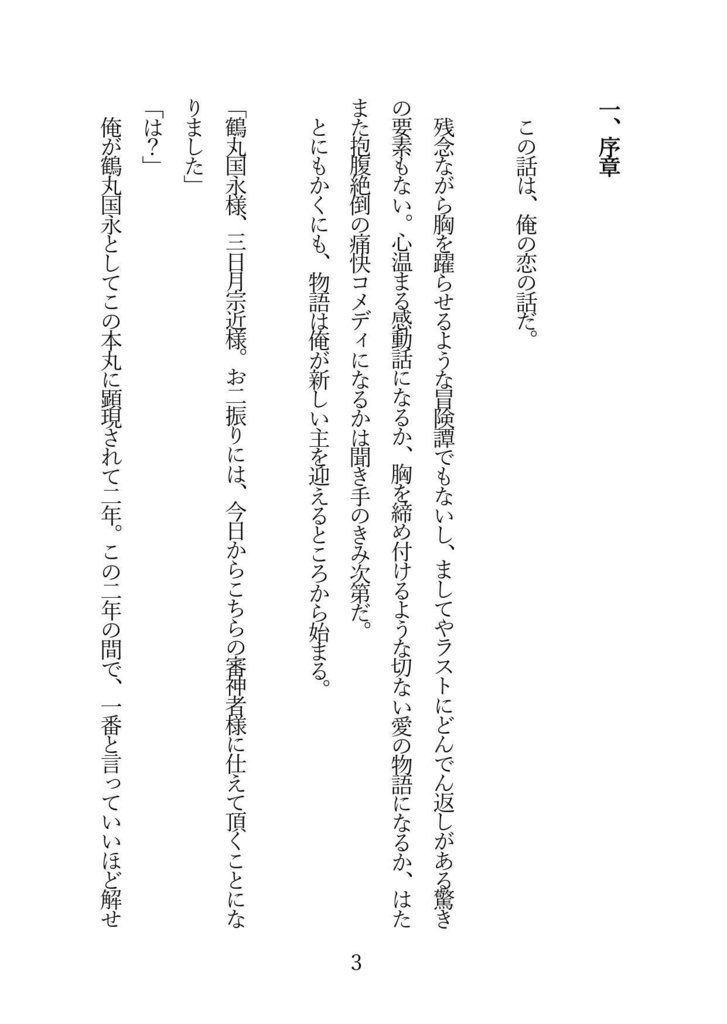 一、序章
この話は、俺の恋の話だ。
残念ながら胸を躍らせるような冒険譚でもないし、ましてやラストにどんでん返しがある驚き
の要素もない。心温まる感動話になるか、胸を締め付けるような切ない愛の物語になるか、はた
また抱腹絶倒の痛快コメディになるかは聞き手のきみ次第だ。
とにもかくにも、物語は俺が新しい主を迎えるところから始まる。
「鶴丸国永様、三日月宗近様。お二振りには、今日からこちらの審神者様に仕えて頂くことにな
りました」
「は？」
俺が鶴丸国永としてこの本丸に顕現されて二年。この二年の間で、一番と言っていいほど解せ
3